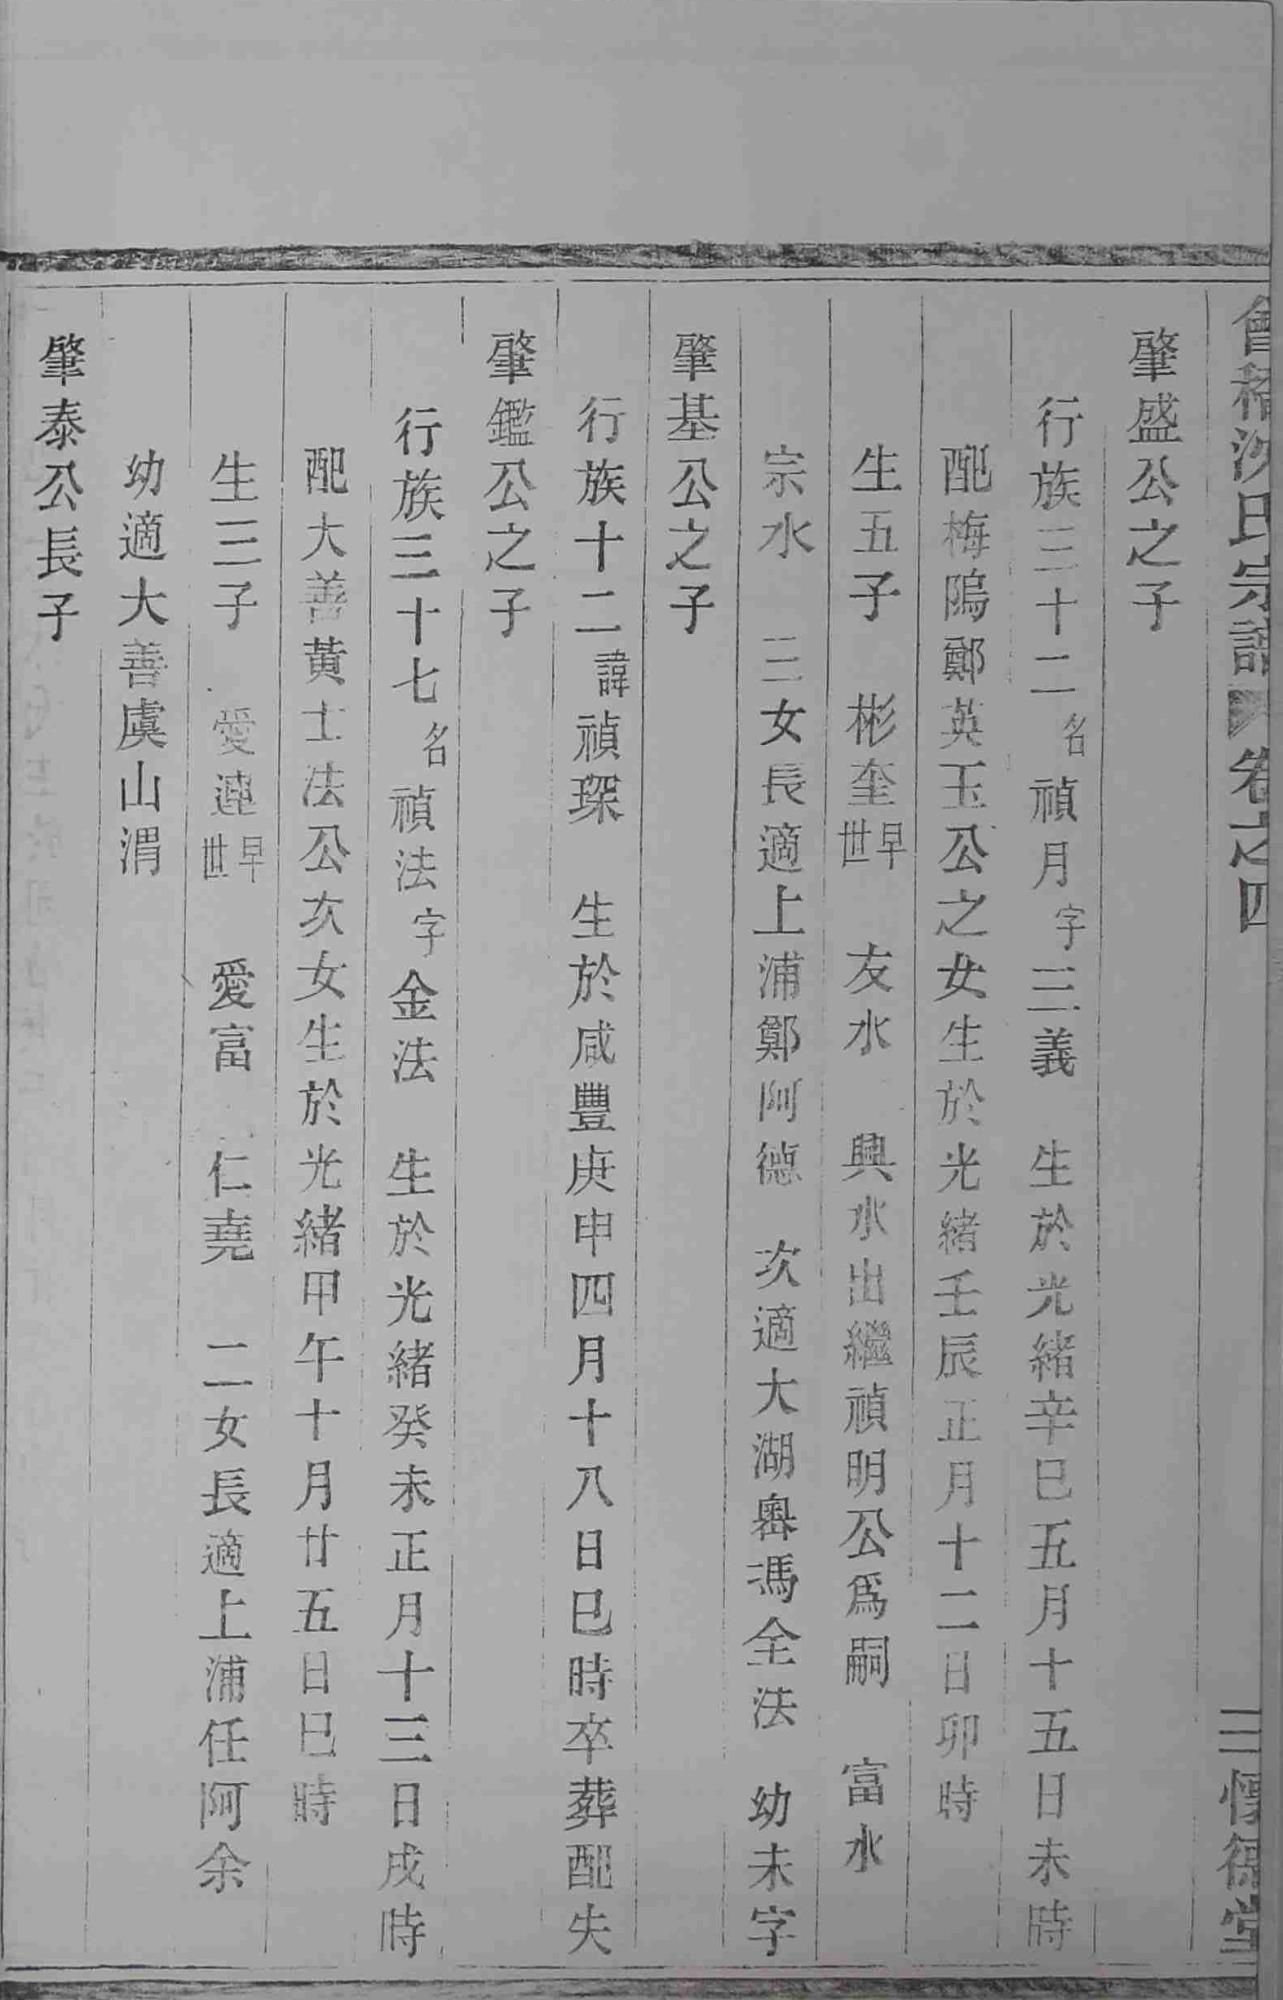 會稽沈氏宗譜 卷之四 三 懷德堂
肇盛公之子
行族三十二名禎月字三義 生於光緒辛巳五月十五日未時
配梅隖鄭英玉公之女生於光緒壬辰正月十二日卯時
生五子 彬奎早世 友水 興水出繼禎明公爲嗣 富水
宗水 三女長適上浦鄭阿德 次適大湖嶴馮全法 幼未字
肇基公之子
行族十二諱禎琛 生於咸豐庚申四月十八日巳時卒葬配失
肇鑑公之子
行族三十七名禎法字金法 生於光緒癸未正月十三日戌時
配大善黃士法公次女生於光緒甲午十月廿五日巳時
生三子 愛連早世 愛富 仁堯 二女長適上浦任阿余
幼適大善虞山渭
肇泰公長子